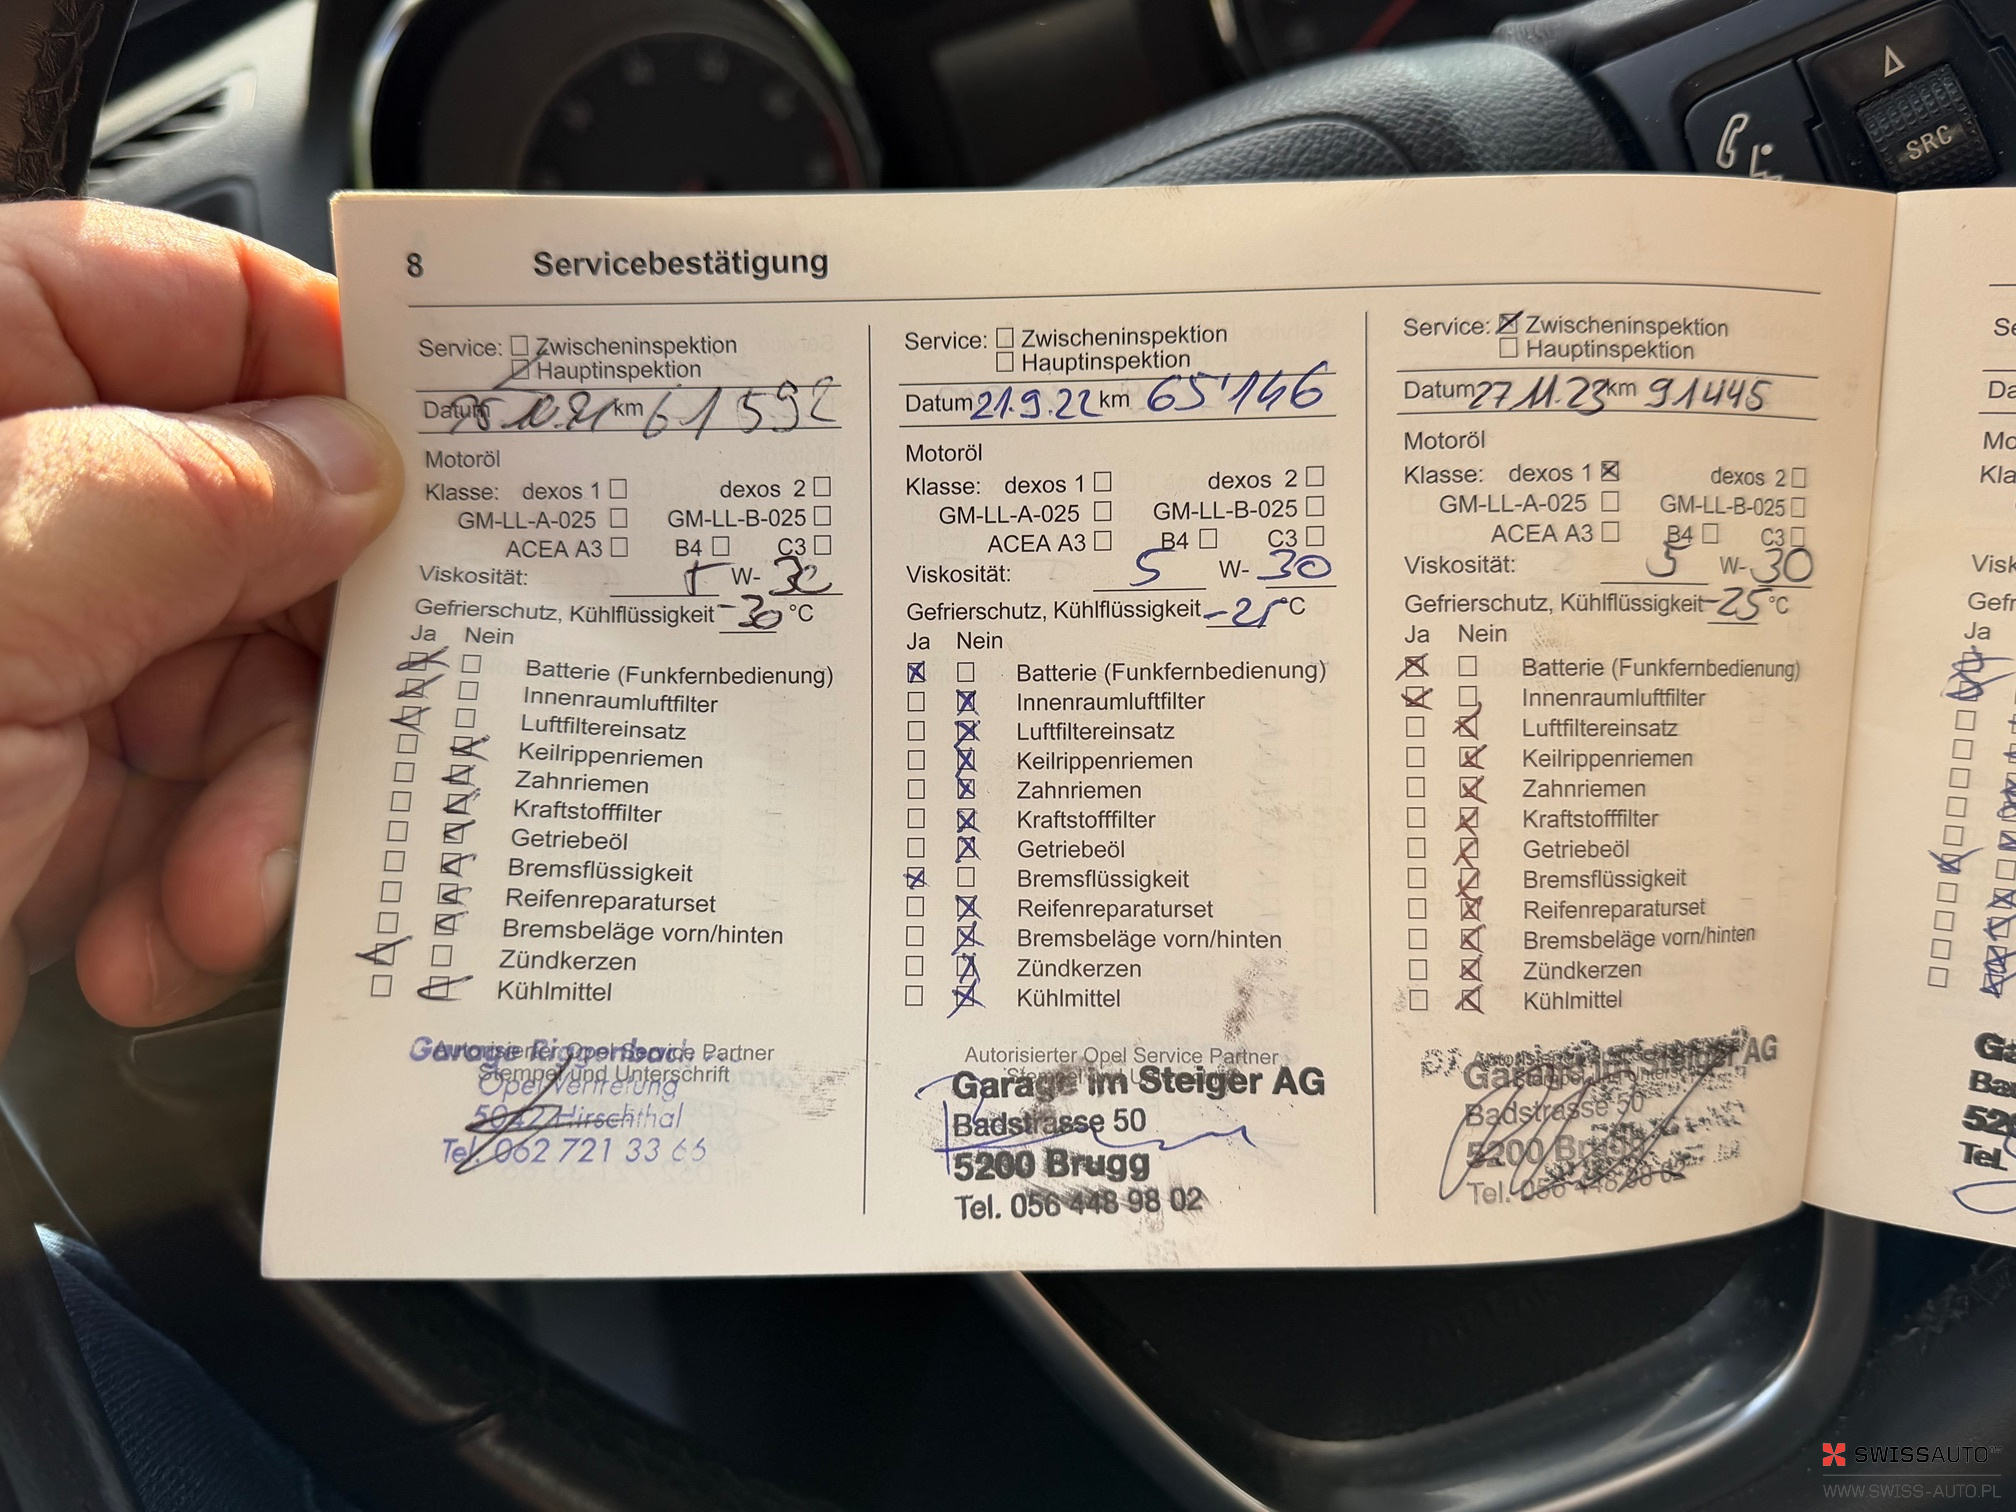 SRC
8 Servicebestätigung
Service: Zwischeninspektion
Hauptinspektion
Datum 10.21 km 61592
Motoröl
Klasse: dexos 1 dexos 2
GM-LL-A-025 GM-LL-B-025
ACEA A3 B4 C3
Viskosität: 5 W-30
Gefrierschutz, Kühlflüssigkeit -30 °C
Ja Nein
Batterie (Funkfernbedienung)
Innenraumluftfilter
Luftfiltereinsatz
Keilrippenriemen
Zahnriemen
Kraftstofffilter
Getriebeöl
Bremsflüssigkeit
Reifenreparaturset
Bremsbeläge vorn/hinten
Zündkerzen
Kühlmittel
Autorisierter Opel Service Partner
Stempel und Unterschrift
Garage Riggenbach
Opel Vertretung
5042 Hirschthal
Tel. 062 721 33 66
Service: Zwischeninspektion
Hauptinspektion
Datum 21.9.22 km 65'146
Motoröl
Klasse: dexos 1 dexos 2
GM-LL-A-025 GM-LL-B-025
ACEA A3 B4 C3
Viskosität: 5 W-30
Gefrierschutz, Kühlflüssigkeit -25 °C
Ja Nein
Batterie (Funkfernbedienung)
Innenraumluftfilter
Luftfiltereinsatz
Keilrippenriemen
Zahnriemen
Kraftstofffilter
Getriebeöl
Bremsflüssigkeit
Reifenreparaturset
Bremsbeläge vorn/hinten
Zündkerzen
Kühlmittel
Autorisierter Opel Service Partner
Garage im Steiger AG
Badstrasse 50
5200 Brugg
Tel. 056 448 98 02
Service: Zwischeninspektion
Hauptinspektion
Datum 27 11.23 km 91445
Motoröl
Klasse: dexos 1 dexos 2
GM-LL-A-025 GM-LL-B-025
ACEA A3 B4 C3
Viskosität: 5 W-30
Gefrierschutz, Kühlflüssigkeit -25 °C
Ja Nein
Batterie (Funkfernbedienung)
Innenraumluftfilter
Luftfiltereinsatz
Keilrippenriemen
Zahnriemen
Kraftstofffilter
Getriebeöl
Bremsflüssigkeit
Reifenreparaturset
Bremsbeläge vorn/hinten
Zündkerzen
Kühlmittel
Garage im Steiger AG
Badstrasse 50
5200 Brugg
Tel. 056 448 98 02
Ja
Tel.
SWISSAUTO
WWW.SWISS-AUTO.PL